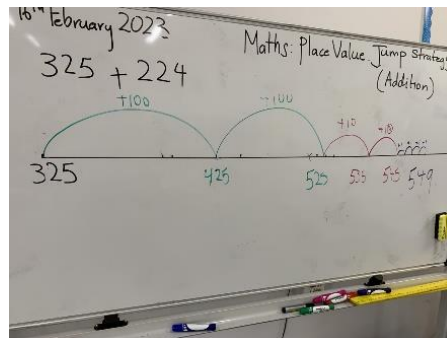 16th February 2023
Maths: Place Value Jump Strategy
(Addition)
325 + 224
+100 +100 +10 +10
325 425 525 535 545 549